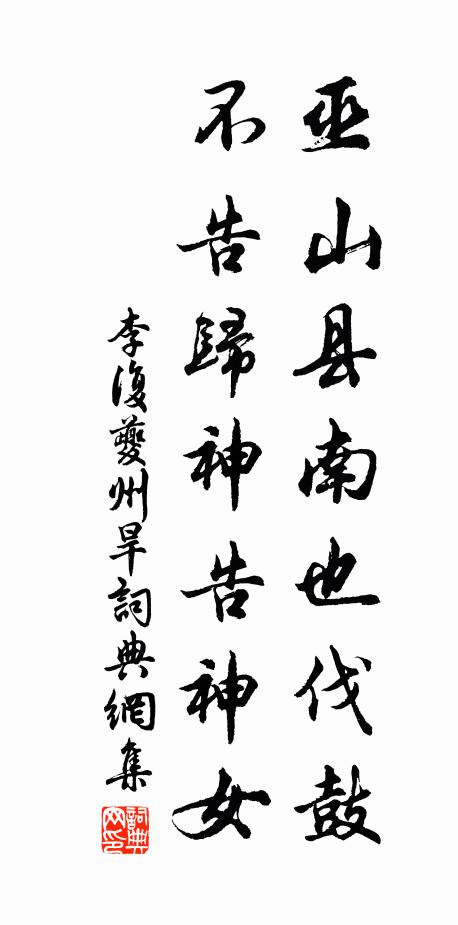 巫山县南也伐鼓
不告歸神告神女
李復夔州旱詞典網集
詞典网印